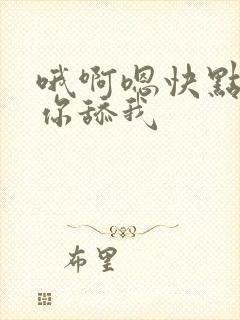 哦啊嗯快點
你舔我
布里